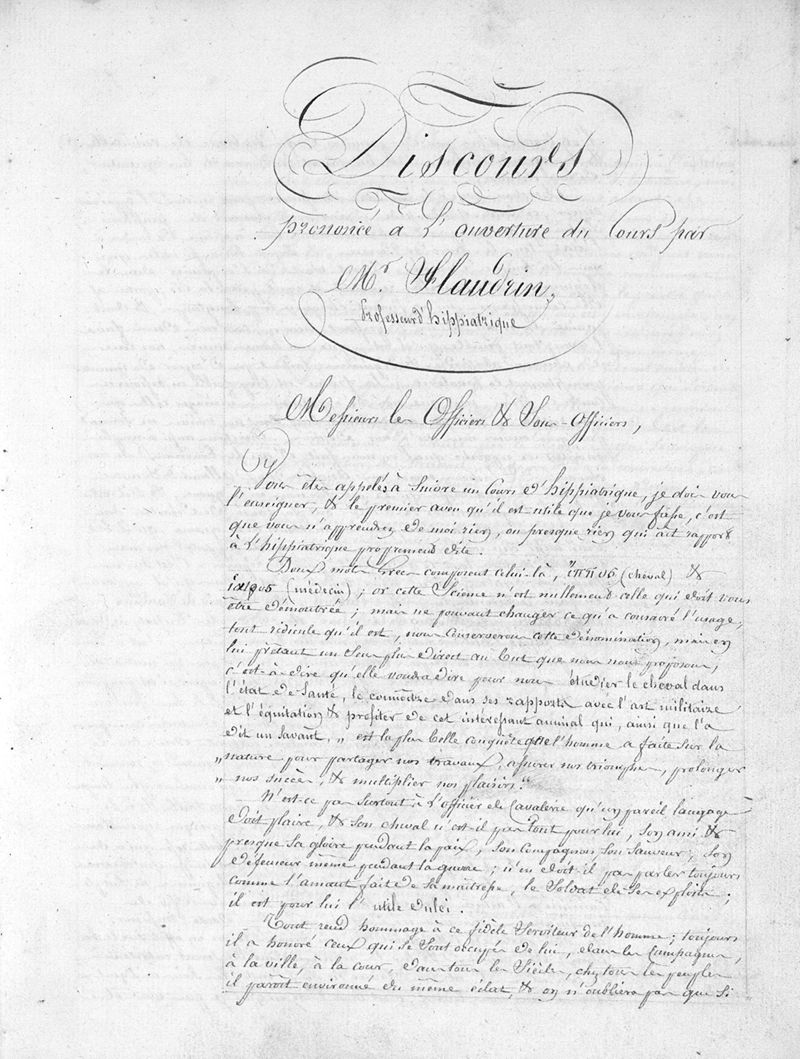 Discours
prononcé à L'ouverture du Cours par
Mr. Flaudrin,
Professeur d'hippiatrique
Messieurs les Officiers & Sous-Officiers,
Vous êtes appelés à Suivre un Cours d'hippiatrique, je dois vous
l'enseigner, & le premier aveu qu'il est utile que je vous fasse, c'est
que vous n'apprendrez de moi rien, ou presque rien qui ait rapport
à L'hippiatrique proprement dite.
Deux mots Grecs composent celui-là, ἵππος (cheval) &
ἰατρος (médecin); or cette Science n'est nullement celle qui doit vous
être démontrée; mais ne pouvant changer ce qu'a consacré l'usage,
tout ridicule qu'il est, nous Conserverons cette dénomination, mais en
lui prêtant un Sens plus direct au but que nous nous proposons,
c'est-à-dire qu'elle voudra dire pour nous étudier le cheval dans
l'état de Santé, le connoître dans ses rapports avec l'art militaire
et l'équitation & profiter de cet intéressant animal qui, ainsi que l'a
dit un savant, „ est la plus belle conquête que l'homme a faite sur la
„ nature pour partager nos travaux, assurer nos triomphes, prolonger
„ nos succès, & multiplier nos plaisirs."
N'est-ce pas Surtout à L'officier de Cavalerie qu'un pareil langage
doit plaire, & son cheval n'est-il pas tout pour lui, son ami &
presque Sa gloire pendant la paix, son Compagnon son Sauveur, son
défenseur même pendant la guerre; n'en doit-il pas parler toujours
comme l'amant fait de Sa maitresse, le Soldat de Ses exploits;
il est pour lui l'utile dulci.
Tout rend hommage à ce fidèle Serviteur de l'homme; toujours
il a honoré ceux qui se Sont occupés de lui, dans les Campagnes,
à la ville, à la cour, dans tous les Siècles, chez tous les peuples
il paroît environné du même éclat, & on n'oubliera pas que Si